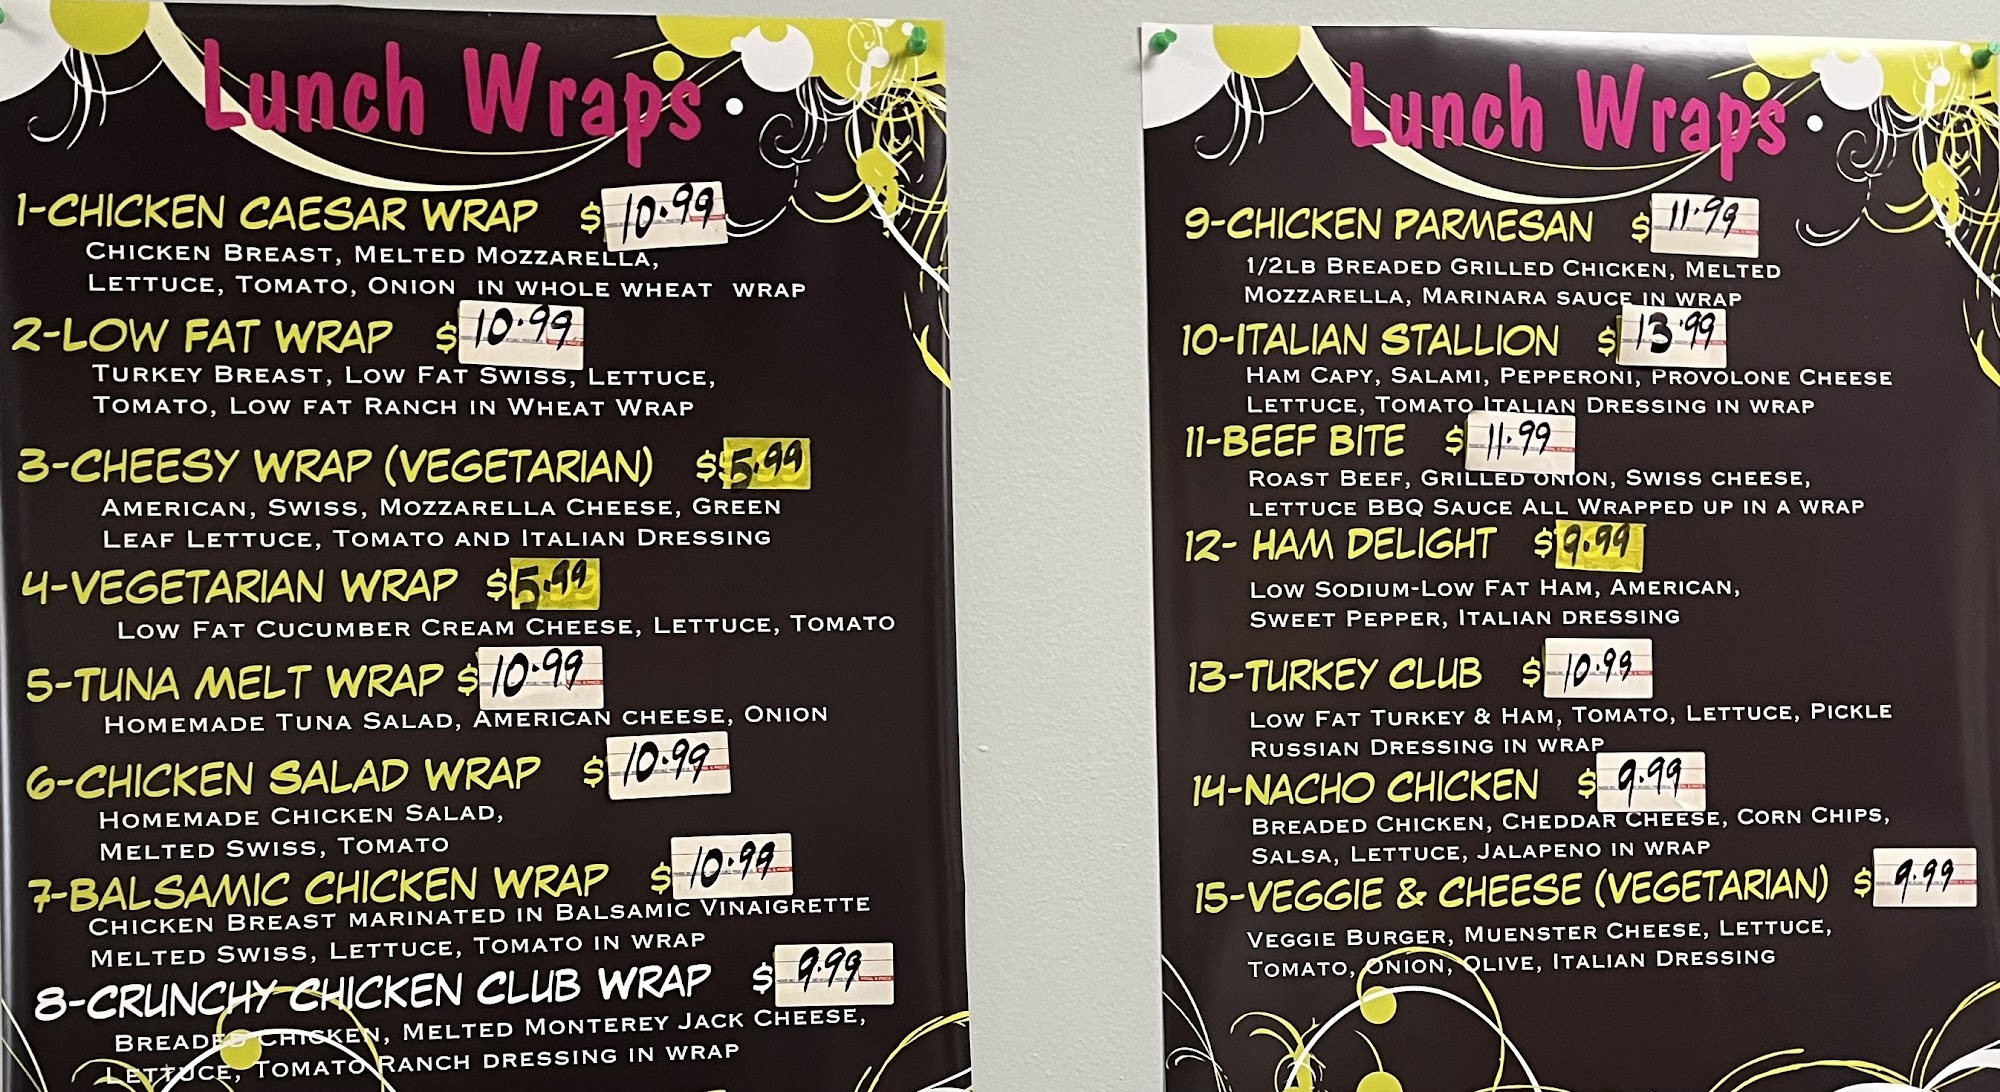 Lunch Wraps
1-CHICKEN CAESAR WRAP $10.99
CHICKEN BREAST, MELTED MOZZARELLA,
LETTUCE, TOMATO, ONION IN WHOLE WHEAT WRAP
2-LOW FAT WRAP $10.99
TURKEY BREAST, LOW FAT SWISS, LETTUCE,
TOMATO, LOW FAT RANCH IN WHEAT WRAP
3-CHEESY WRAP (VEGETARIAN) $5.99
AMERICAN, SWISS, MOZZARELLA CHEESE, GREEN
LEAF LETTUCE, TOMATO AND ITALIAN DRESSING
4-VEGETARIAN WRAP $5.99
LOW FAT CUCUMBER CREAM CHEESE, LETTUCE, TOMATO
5-TUNA MELT WRAP $10.99
HOMEMADE TUNA SALAD, AMERICAN CHEESE, ONION
6-CHICKEN SALAD WRAP $10.99
HOMEMADE CHICKEN SALAD,
MELTED SWISS, TOMATO
7-BALSAMIC CHICKEN WRAP $10.99
CHICKEN BREAST MARINATED IN BALSAMIC VINAIGRETTE
MELTED SWISS, LETTUCE, TOMATO IN WRAP
8-CRUNCHY CHICKEN CLUB WRAP $9.99
BREADED CHICKEN, MELTED MONTEREY JACK CHEESE,
LETTUCE, TOMATO RANCH DRESSING IN WRAP
Lunch Wraps
9-CHICKEN PARMESAN $11.99
1/2LB BREADED GRILLED CHICKEN, MELTED
MOZZARELLA, MARINARA SAUCE IN WRAP
10-ITALIAN STALLION $13.99
HAM CAPY, SALAMI, PEPPERONI, PROVOLONE CHEESE
LETTUCE, TOMATO ITALIAN DRESSING IN WRAP
11-BEEF BITE $11.99
ROAST BEEF, GRILLED ONION, SWISS CHEESE,
LETTUCE BBQ SAUCE ALL WRAPPED UP IN A WRAP
12- HAM DELIGHT $9.99
LOW SODIUM-LOW FAT HAM, AMERICAN,
SWEET PEPPER, ITALIAN DRESSING
13-TURKEY CLUB $10.99
LOW FAT TURKEY & HAM, TOMATO, LETTUCE, PICKLE
RUSSIAN DRESSING IN WRAP
14-NACHO CHICKEN $9.99
BREADED CHICKEN, CHEDDAR CHEESE, CORN CHIPS,
SALSA, LETTUCE, JALAPENO IN WRAP
15-VEGGIE & CHEESE (VEGETARIAN) $9.99
VEGGIE BURGER, MUENSTER CHEESE, LETTUCE,
TOMATO, ONION, OLIVE, ITALIAN DRESSING